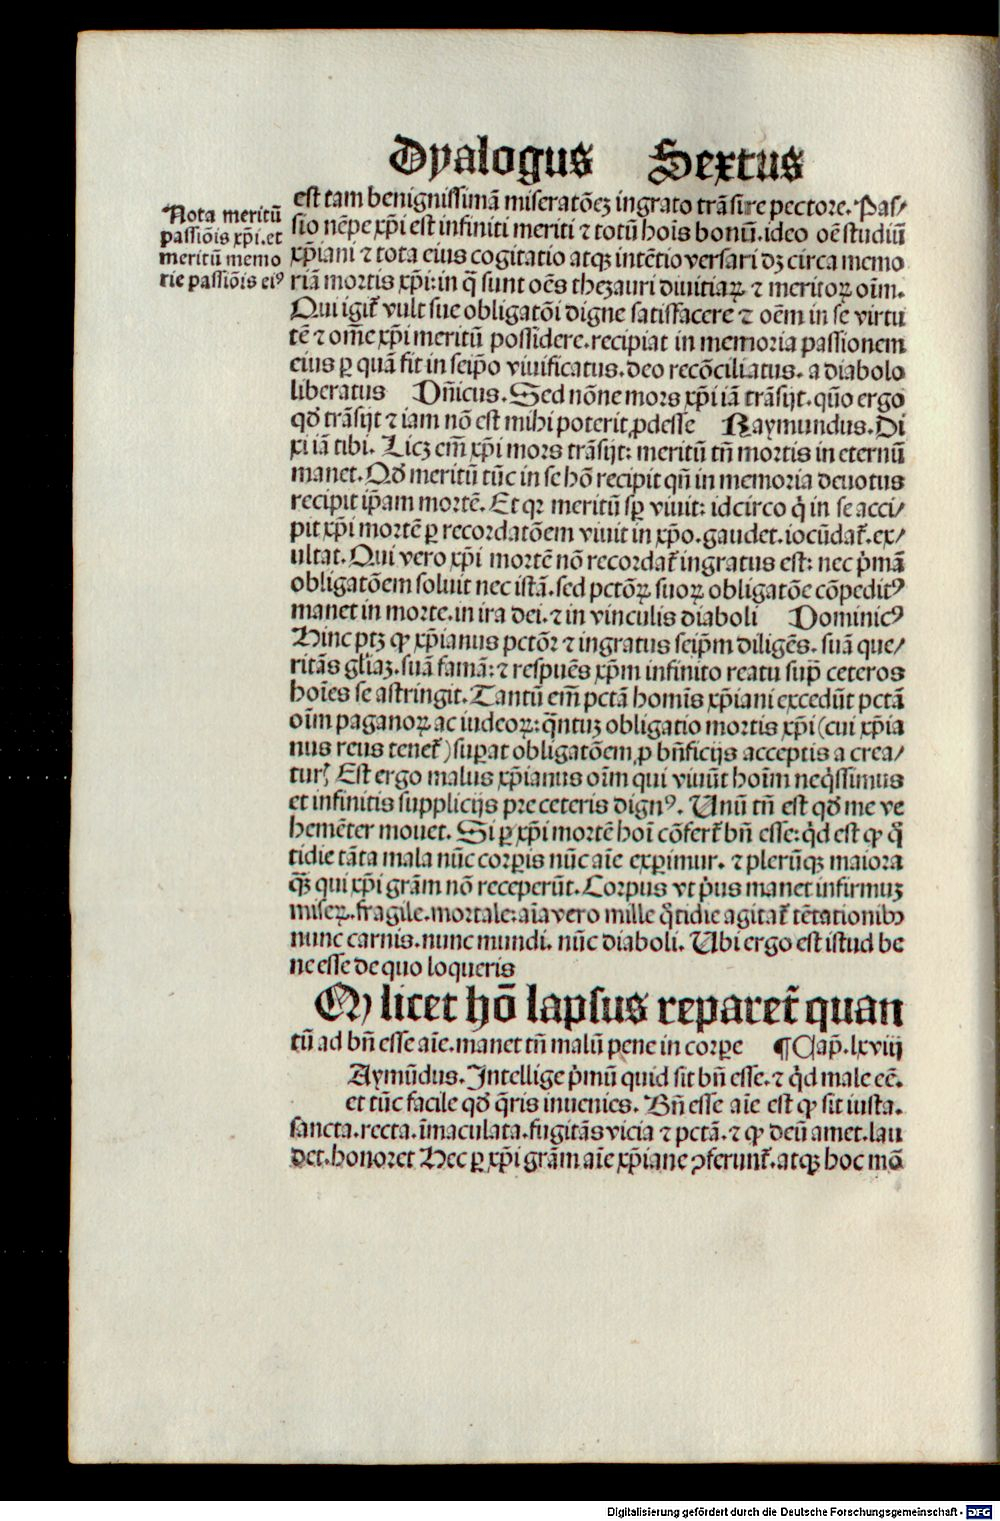 Dyalogus Sextus
Nota meritū
passiōis xp̄i.et
meritū memo
rie passiōis eiꝰ
est tam benignissimā miseratōeꝫ ingrato trāsire pectore. Pas⸗
sio nēpe xp̄i est infiniti meriti ⁊ totū hoīs bonū. ideo oē studiū
xp̄iani ⁊ tota eius cogitatio atqꝫ intētio versari dꝫ circa memo
riā mortis xp̄i: in q̄ sunt oēs thezauri diuitiaꝝ ⁊ meritoꝝ oīm.
Qui igit̄ vult sue obligatōi digne satisfacere ⁊ oēm in se virtu
tē ⁊ om̄e xp̄i meritū possidere. recipiat in memoria passionem
eius ꝑ quā fit in seip̄o viuificatus. deo recōciliatus. a diabolo
liberatus Dn̄icus. Sed nōne mors xp̄i iā trāsijt. quō ergo
qđ trāsijt ⁊ iam nō est mihi poterit ꝓdesse Raymundus. Di
xi iā tibi. Licꝫ em̄ xp̄i mors trāsijt: meritū tn̄ mortis in eternū
manet. Qđ meritū tūc in se hō recipit qn̄ in memoria deuotus
recipit ip̄am mortē. Et qꝛ meritū sp̄ viuit: idcirco q̇ in se acci⸗
pit xp̄i mortē ꝑ recordatōem viuit in xp̄o. gaudet. iocūdat̄. ex⸗
ultat. Qui vero xp̄i mortē nō recordat̄ ingratus est: nec p̄mā
obligatōem soluit nec istā. sed pctōꝝ suoꝝ obligatōe cōpeditꝰ
manet in morte. in ira dei. ⁊ in vinculis diaboli Dominicꝰ
Hinc ptꝫ ꝙ xp̄ianus pctōr ⁊ ingratus seip̄m diligēs. suā que⸗
ritās gl̄iaꝫ. suā famā: ⁊ respuēs xp̄m infinito reatu sup̄ ceteros
hoīes se astringit. Tantū em̄ pctā homīs xp̄iani excedūt pctā
oīm paganoꝝ ac iudeoꝝ: q̄ntuꝫ obligatio mortis xp̄i (cui xp̄ia
nus reus tenet̄) suꝑat obligatōem ꝓ bn̄ficijs acceptis a crea⸗
turꝭ Est ergo malus xp̄ianus oīm qui viuūt hoīm neq̇ssimus
et infinitis supplicijs pre ceteris dignꝰ. Unū tn̄ est qđ me ve
hemēter mouet. Si ꝑ xp̄i mortē hoī cōfert̄ bn̄ esse: q̇d est ꝙ q̊
tidie tāta mala nūc corꝑis nūc aīe exꝑimur. ⁊ plerūqꝫ maiora
q̄ꝫ qui xp̄i grām nō receperūt. Corpus vt ṗus manet infirmuꝫ
miseꝝ. fragile. mortale: aīa vero mille q̊tidie agitat̄ tētationibꝰ
nunc carnis. nunc mundi. nūc diaboli. Ubi ergo est istud be
ne esse de quo loqueris
Q licet hō lapsus reparet̄ quan
tū ad bn̄ esse aīe. manet tn̄ malū pene in corꝑe ¶ Cap̄. lxviij
Aymūdus. Intellige ṗmū quid sit bn̄ esse. ⁊ q̇d male eē.
et tūc facile qđ q̄ris inuenies. Bn̄ esse aīe est ꝙ sit iusta.
sancta. recta. īmaculata. fugitās vicia ⁊ pctā. ⁊ ꝙ deū amet. lau
det. honoret Hec ꝑ xp̄i grām aīe xp̄iane ꝯferunt̄. atqꝫ hoc mō
Digitalisierung gefördert durch die Deutsche Forschungsgemeinschaft - DFG